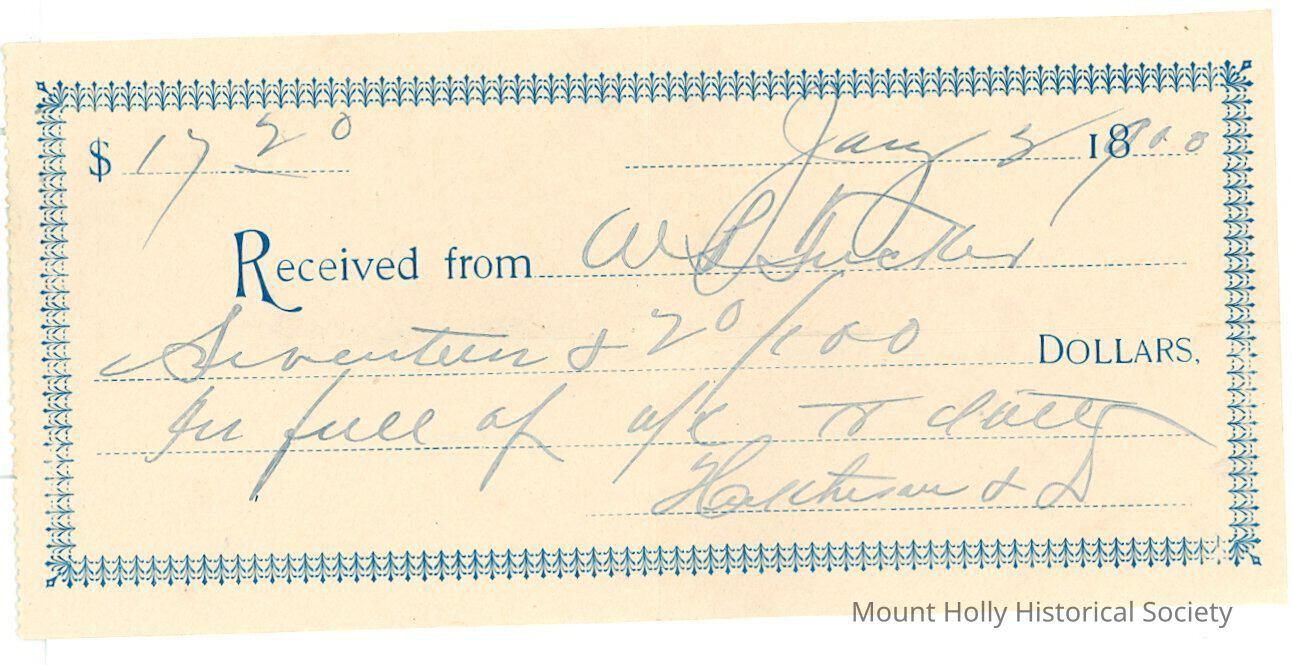 $ 17 20 Jany 3 1900
Received from W L Tucker
Seventeen & 20/100 DOLLARS,
In full of a/c to date
& D
Mount Holly Historical Society